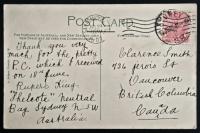 POST CARD
Thank you very
much for the pretty
P.C. which I received
on 18th June.
Neutral
Bay Sydney N.S.W
Australia
Clarence Smith
736 Jervis St
Vancouver
British Columbia
Canada